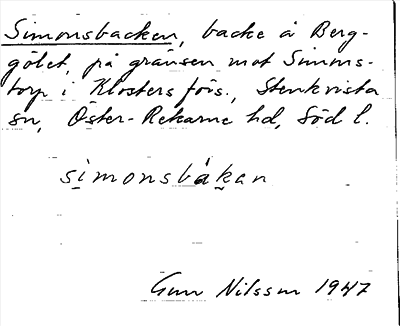 Simonsbacken, backe å Berg-
gölet, på gränsen mot Simms-
torp i Klosters förs., Stenkvista
sn, Öster-Rekarne hd, Söd l.
simonsbàkan
Gun Nilsson 1947